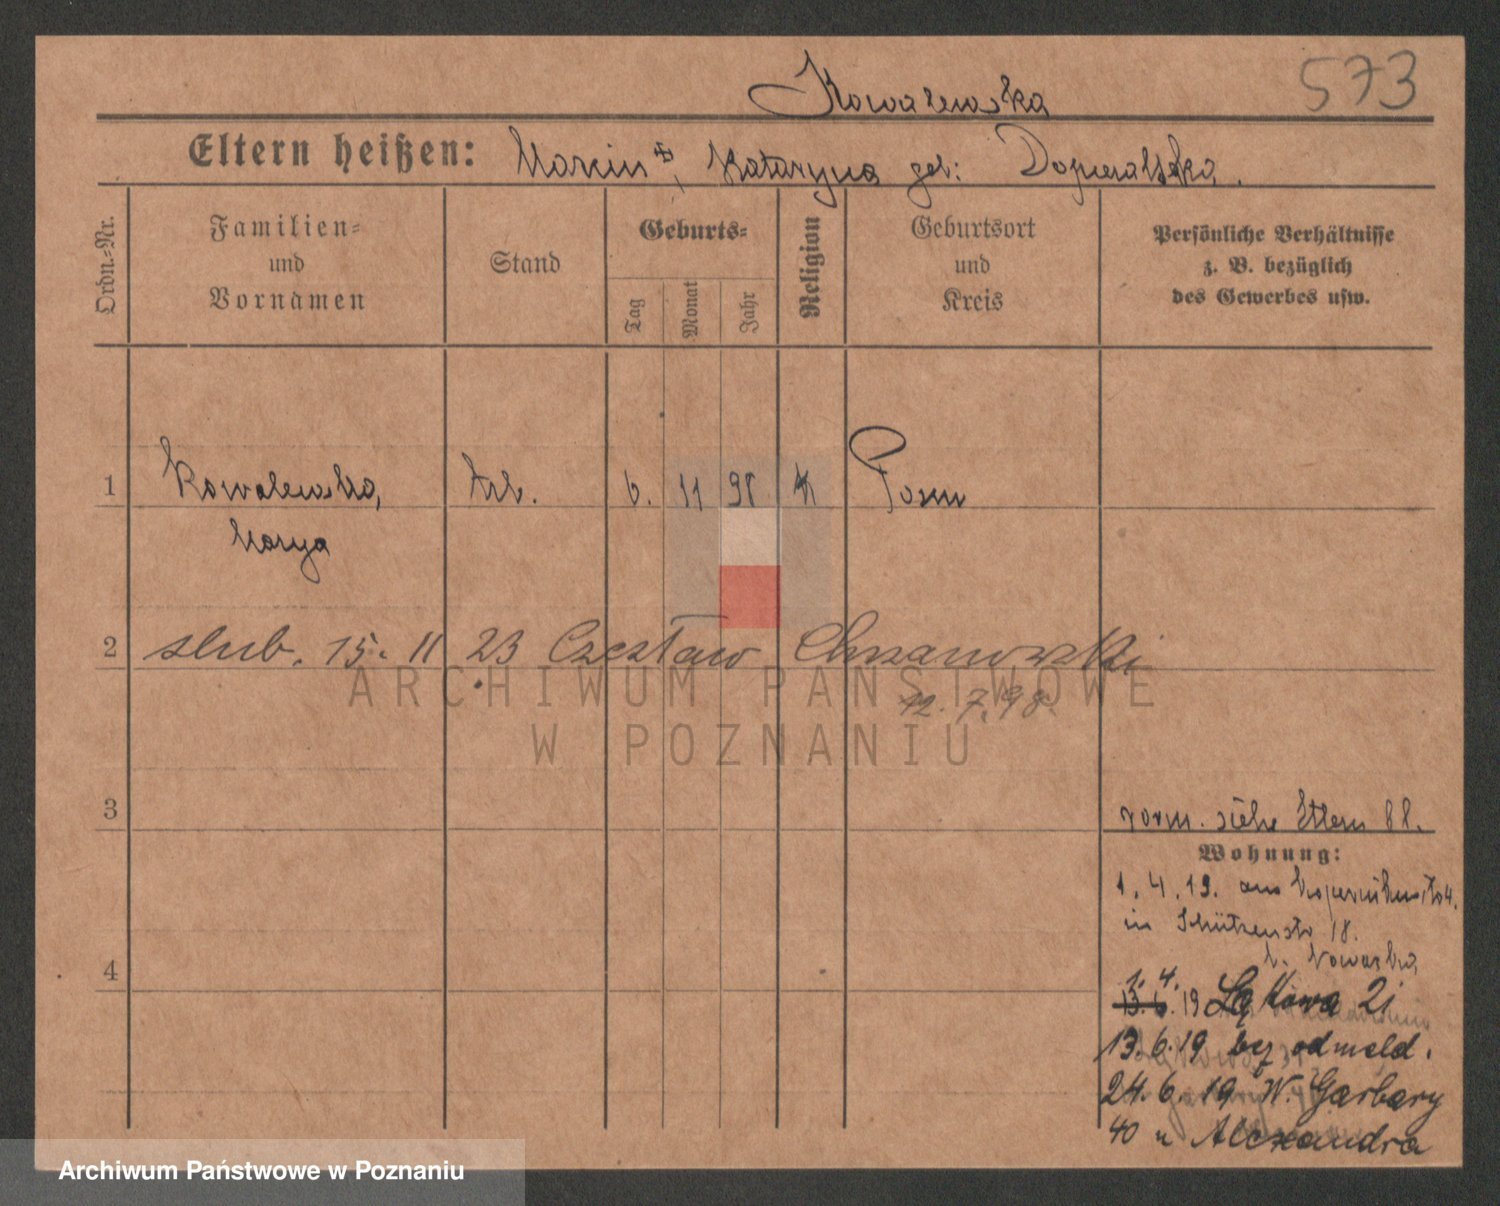 Kowalewska
573
Eltern heißen: Marcin +, Kataryna geb:
Ordn.-Nr.
Familien-
und
Vornamen
Stand
Geburts-
Tag
Monat
Jahr
Religion
Geburtsort
und
Kreis
Persönliche Verhältnisse
z. B. bezüglich
des Gewerbes usw.
1 Kowalewska, Arb. 6. 11 98 K Posen
Marya
2 slub. 15. 11 23 Czesław Chrzanowski
12. 7. 98.
3
vorm. siehe Eltern Bl.
Wohnung:
1. 4. 19. aus
in Schützenstr 18.
b. Nowaska
4
1. 4.
13. 6. 19 Łąkowa 21
13. 6. 19 bez odmeld.
24. 6. 19 W. Garbary
40 u Alexandra
ARCHIWUM PAŃSTWOWE
W POZNANIU
Archiwum Państwowe w Poznaniu